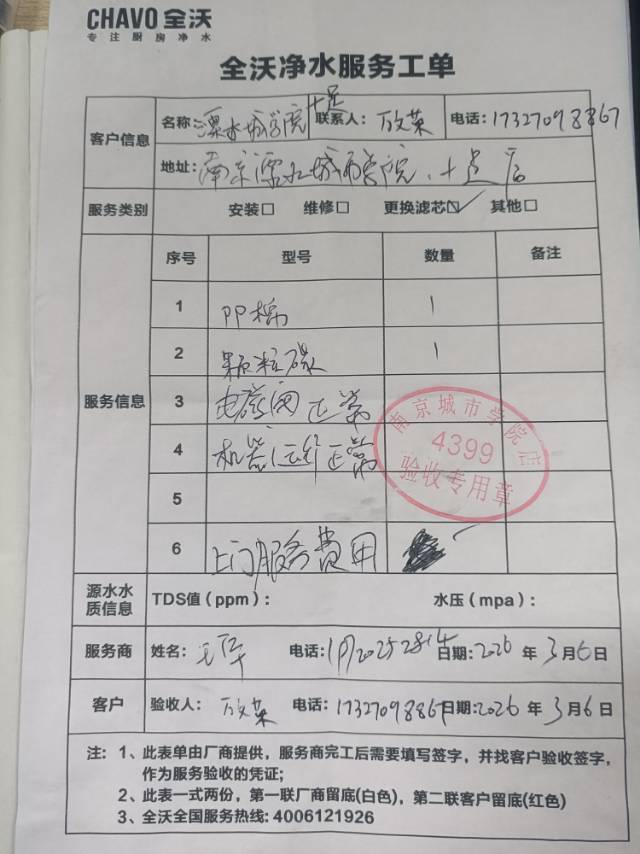 CHAVO 全沃
专注厨房净水
全沃净水服务工单
客户信息
名称: 溧水城学院十足 联系人: 放荣 电话: 17327098867
地址: 南京溧水城市学院、十足店
服务类别 安装□ 维修□ 更换滤芯☑ 其他□
服务信息
序号 型号 数量 备注
1 PP棉 1
2 颗粒碳 1
3 电磁阀正常
4 机器运行正常
5
6 上门服务费用
南京城市学院店
4399
验收专用章
源水水质信息 TDS值（ppm）: 水压（mpa）:
服务商 姓名: 电话: 日期: 2026 年 3 月 6 日
客户 验收人: 放荣 电话: 17327098867 日期: 2026 年 3 月 6 日
注: 1、此表单由厂商提供，服务商完工后需要填写签字，并找客户验收签字，
作为服务验收的凭证;
2、此表一式两份，第一联厂商留底(白色)，第二联客户留底(红色)
3、全沃全国服务热线: 4006121926